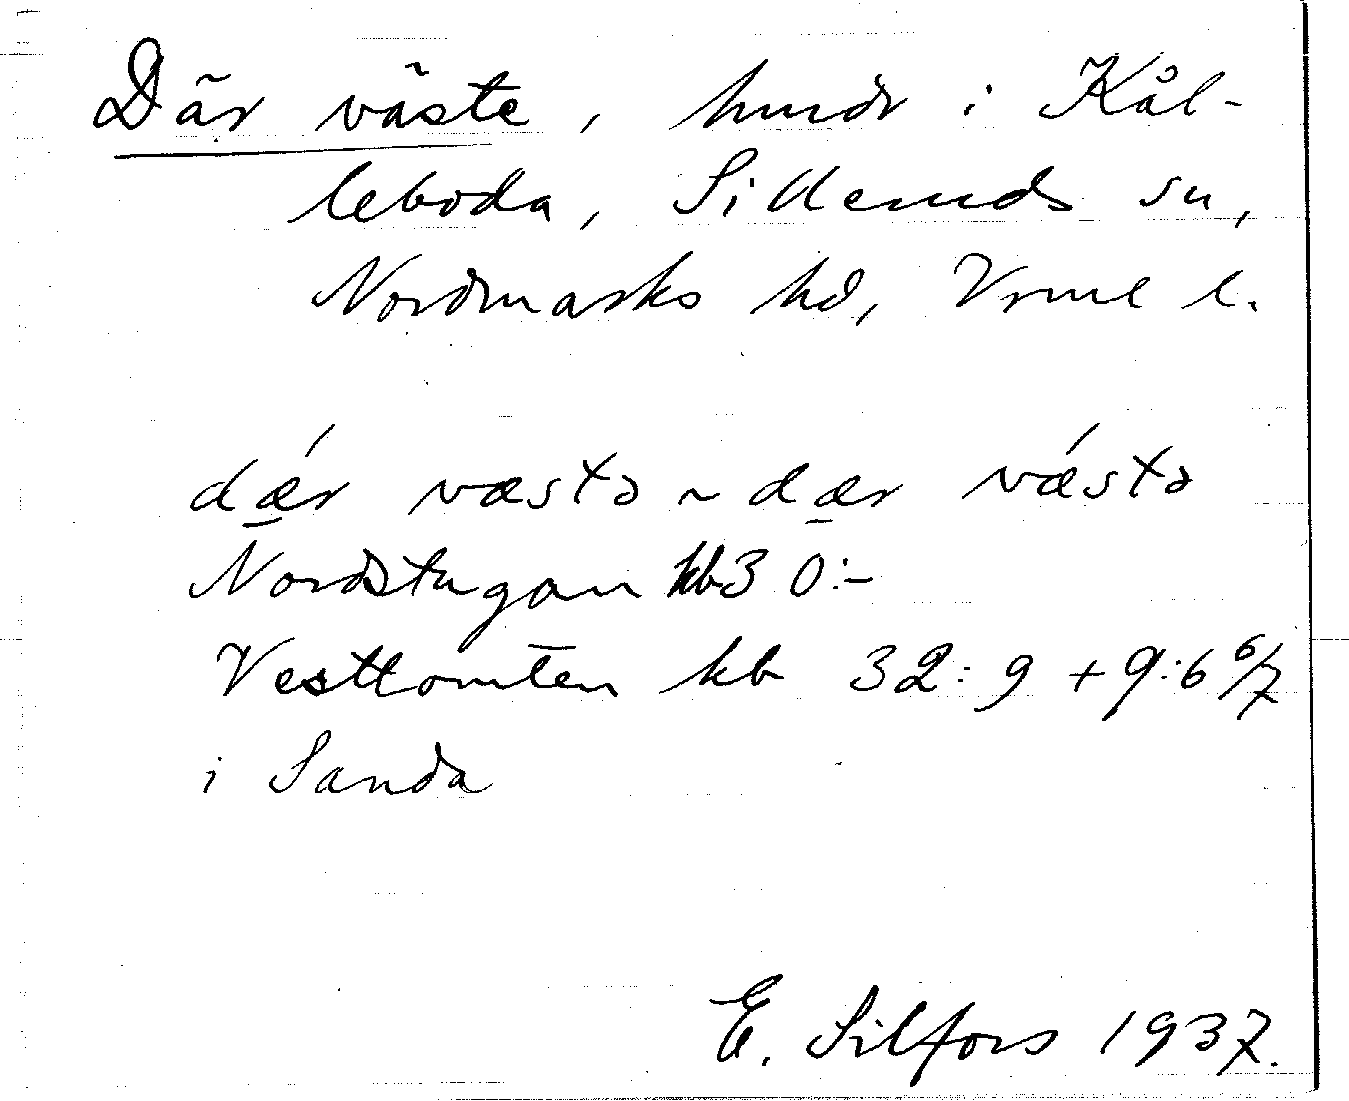 Där väste, hmdr i Kål-
leboda, Silleruds sn,
Nordmarks hd, Vrml l.
dǽr væstə ~ dær vǽstə
Nordstugan kb 30:-
Vesttomten kb 32:9 + 9:6 6/7
i Sanda
E. Silfors 1937.